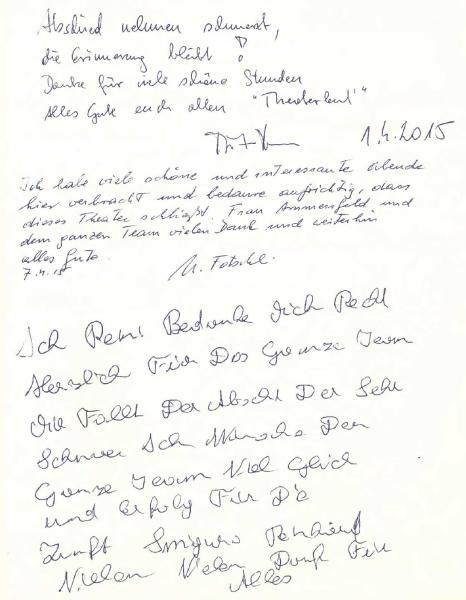 Abschied nehmen schmerzt,
die Erinnerung bleibt!
Danke für viele schöne Stunden
Alles Gute euch allen "Theaterleut'"
1.4.2015
Ich habe viele schöne und interessante Abende
hier verbracht und bedaure aufrichtig, dass
dieses Theater schließt. Frau Ammersfeld und
dem ganzen Team vielen Dank und weiterhin
alles Gute.
7.4.15
Ich Bedanke Dich Recht
Herzlich Für Das Ganze Team
Fällt Der Abscht Der Sehr
Schwer Ich Den
Ganze Team Viel Glück
und Erfolg Für Die
Zunft
Vielen Vielen Dank Für
Alles